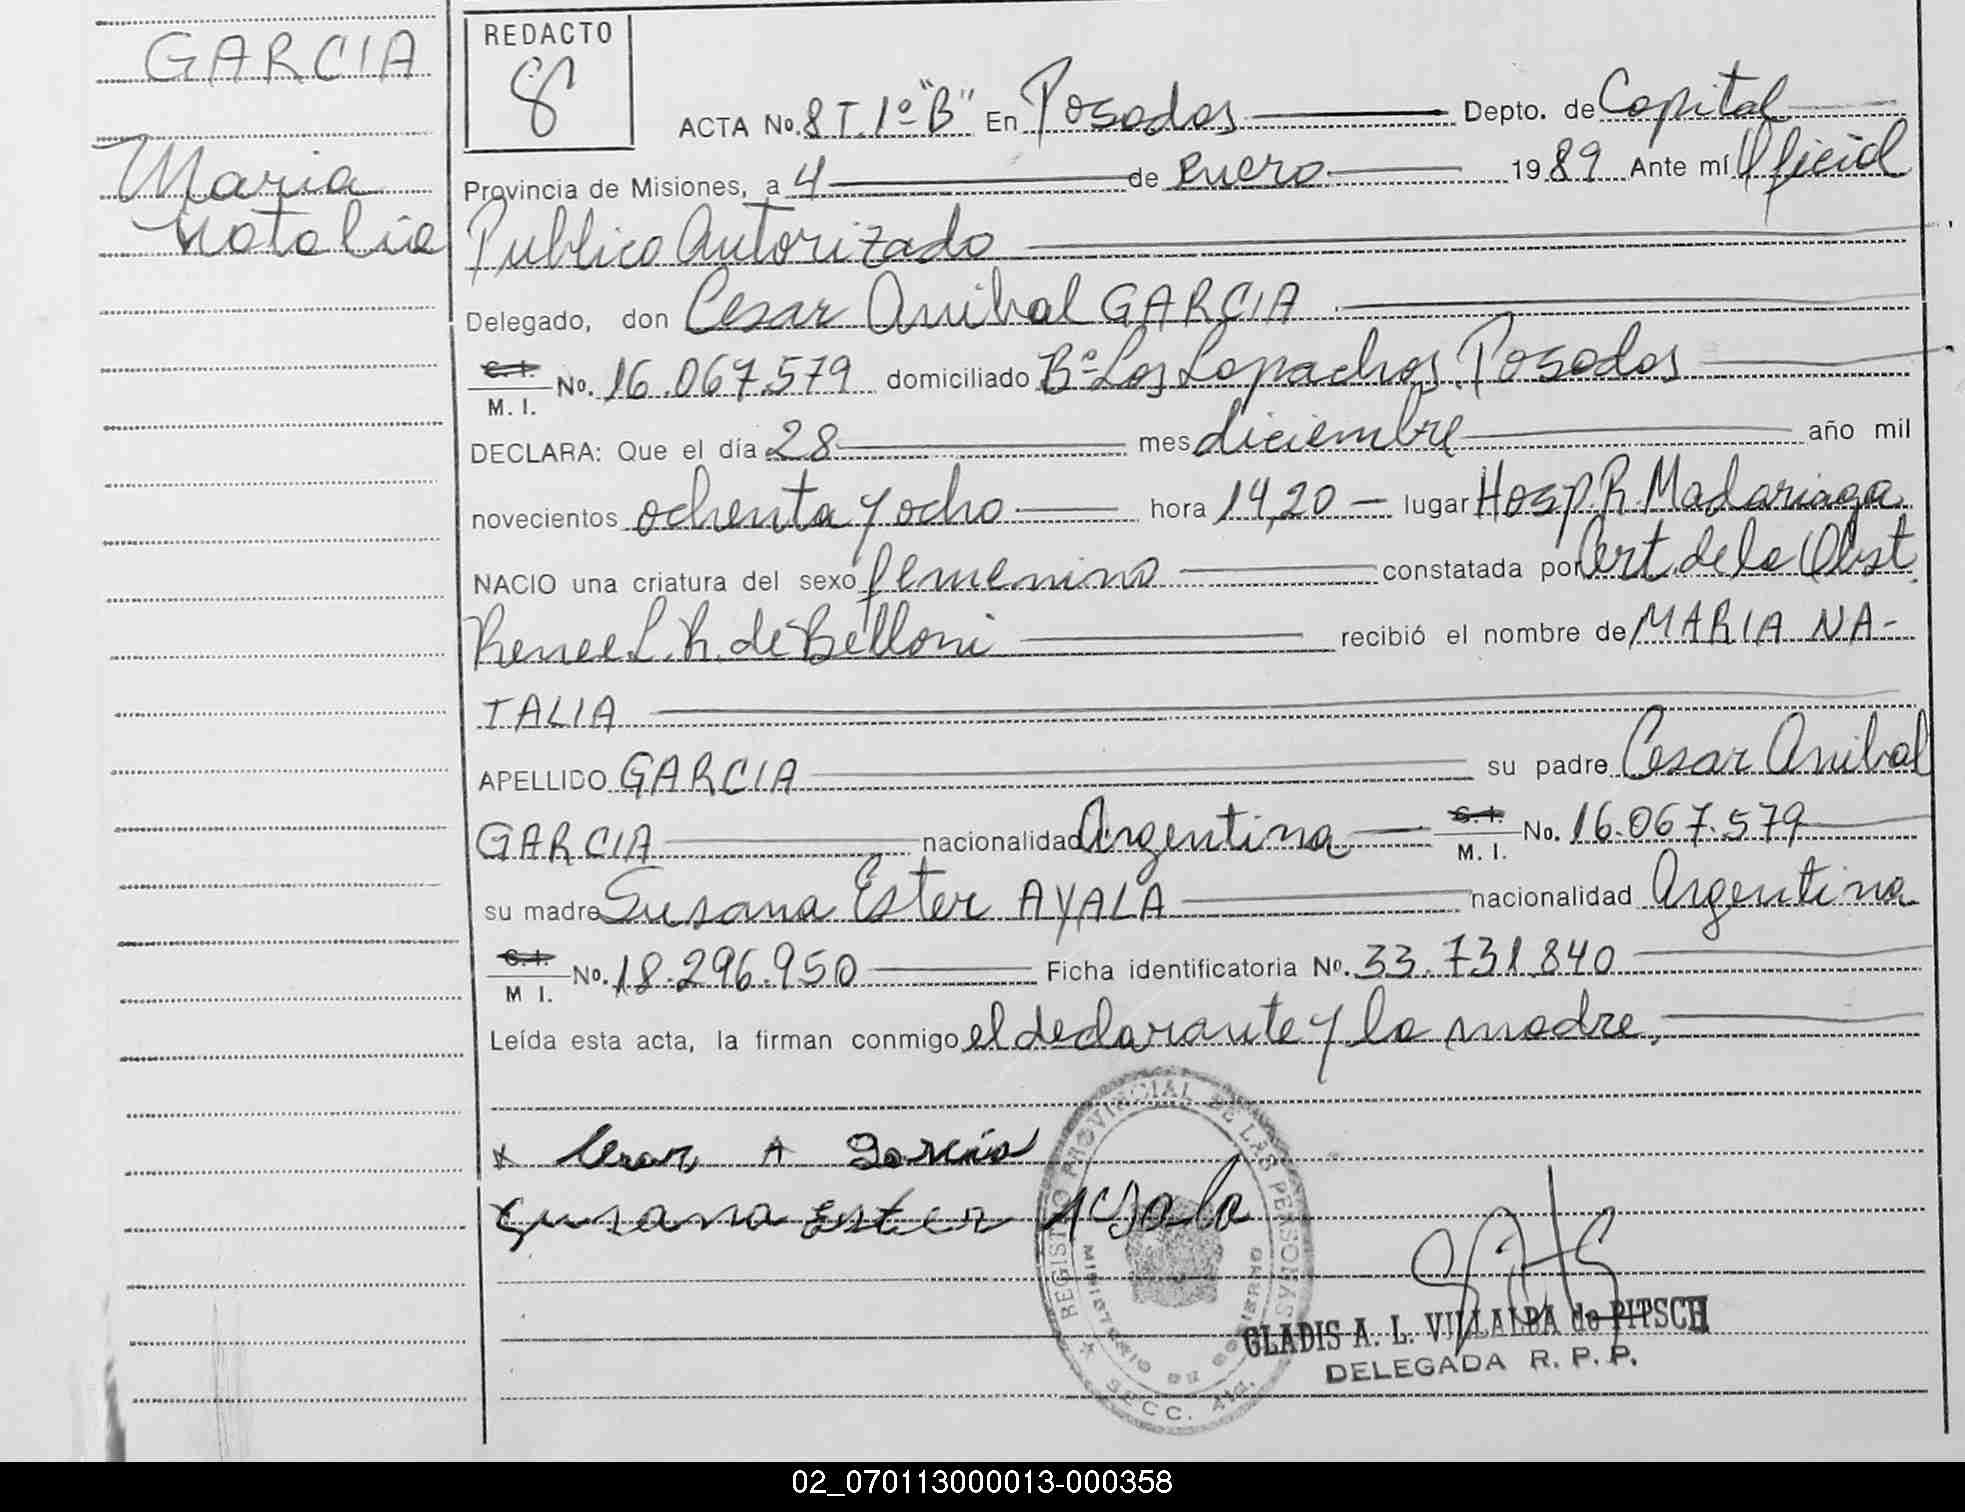 GARCIA
Maria
Natalia
REDACTO
8
ACTA No. 8 T. 1º "B" En Posadas Depto. de Capital
Provincia de Misiones, a 4 de enero 1989 Ante mí Oficial
Publico Autorizado
Delegado, don Cesar Anibal GARCIA
C. I.
M. I. No. 16.067.579 domiciliado Bº Los Lapachos, Posadas
DECLARA: Que el día 28 mes diciembre año mil
novecientos ochenta y ocho hora 14,20 lugar Hosp. R. Madariaga
NACIO una criatura del sexo femenino constatada por Cert. de la Obst.
Renee L. R. de Belloni recibió el nombre de MARIA NA-
TALIA
APELLIDO GARCIA su padre Cesar Anibal
GARCIA nacionalidad Argentina C. I. M. I. No. 16.067.579
su madre Susana Ester AYALA nacionalidad Argentina
C. I. M I. No. 18.296.950 Ficha identificatoria No. 33.731.840
Leída esta acta, la firman conmigo el declarante y la madre.
x Cesar A Garcia
Susana Ester Ayala
REGISTRO PROVINCIAL DE LAS PERSONAS
MINISTERIO DE GOBIERNO
SECC.
GLADIS A. L. VILLALBA de PITSCH
DELEGADA R. P. P.
02_070113000013-000358